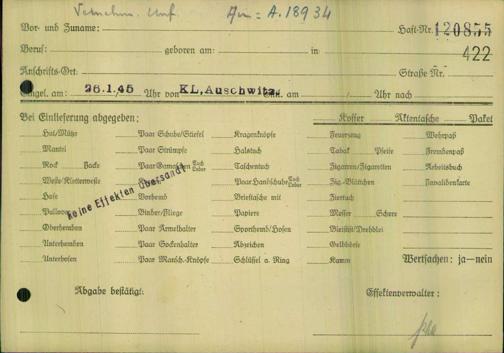 An = A. 18934
Vor- und Zuname: Haft-Nr. 120855
422
Beruf: geboren am: in
Anschrifts-Ort: Straße Nr.
Eingel. am: 26.1.45 Uhr von KL, Auschwitz. Entl. am: Uhr nach
Bei Einlieferung abgegeben: Koffer Aktentasche Paket
Hut/Mütze Paar Schuhe/Stiefel Kragenknöpfe Feuerzeug Wehrpaß
Mantel Paar Strümpfe Halstuch Tabak Pfeife Fremdenpaß
Rock Jacke Paar Gamaschen Tuch Leder Taschentuch Zigarren/Zigaretten Arbeitsbuch
Weste/Kletterweste Paar Handschuhe Stoff Leder Zig.-Blättchen Invalidenkarte
Hose Vorhemd Brieftasche mit Ziertuch
keine Effekten übersandt
Pullover Binder/Fliege Papiere Messer Schere
Oberhemden Paar Ärmelhalter Sporthemd/Hosen Bleistift/Drehblei
Unterhemden Paar Sockenhalter Abzeichen Geldbörse
Unterhosen Paar Mansch.-Knöpfe Schlüssel a. Ring Kamm Wertsachen: ja—nein
Abgabe bestätigt: Effektenverwalter: